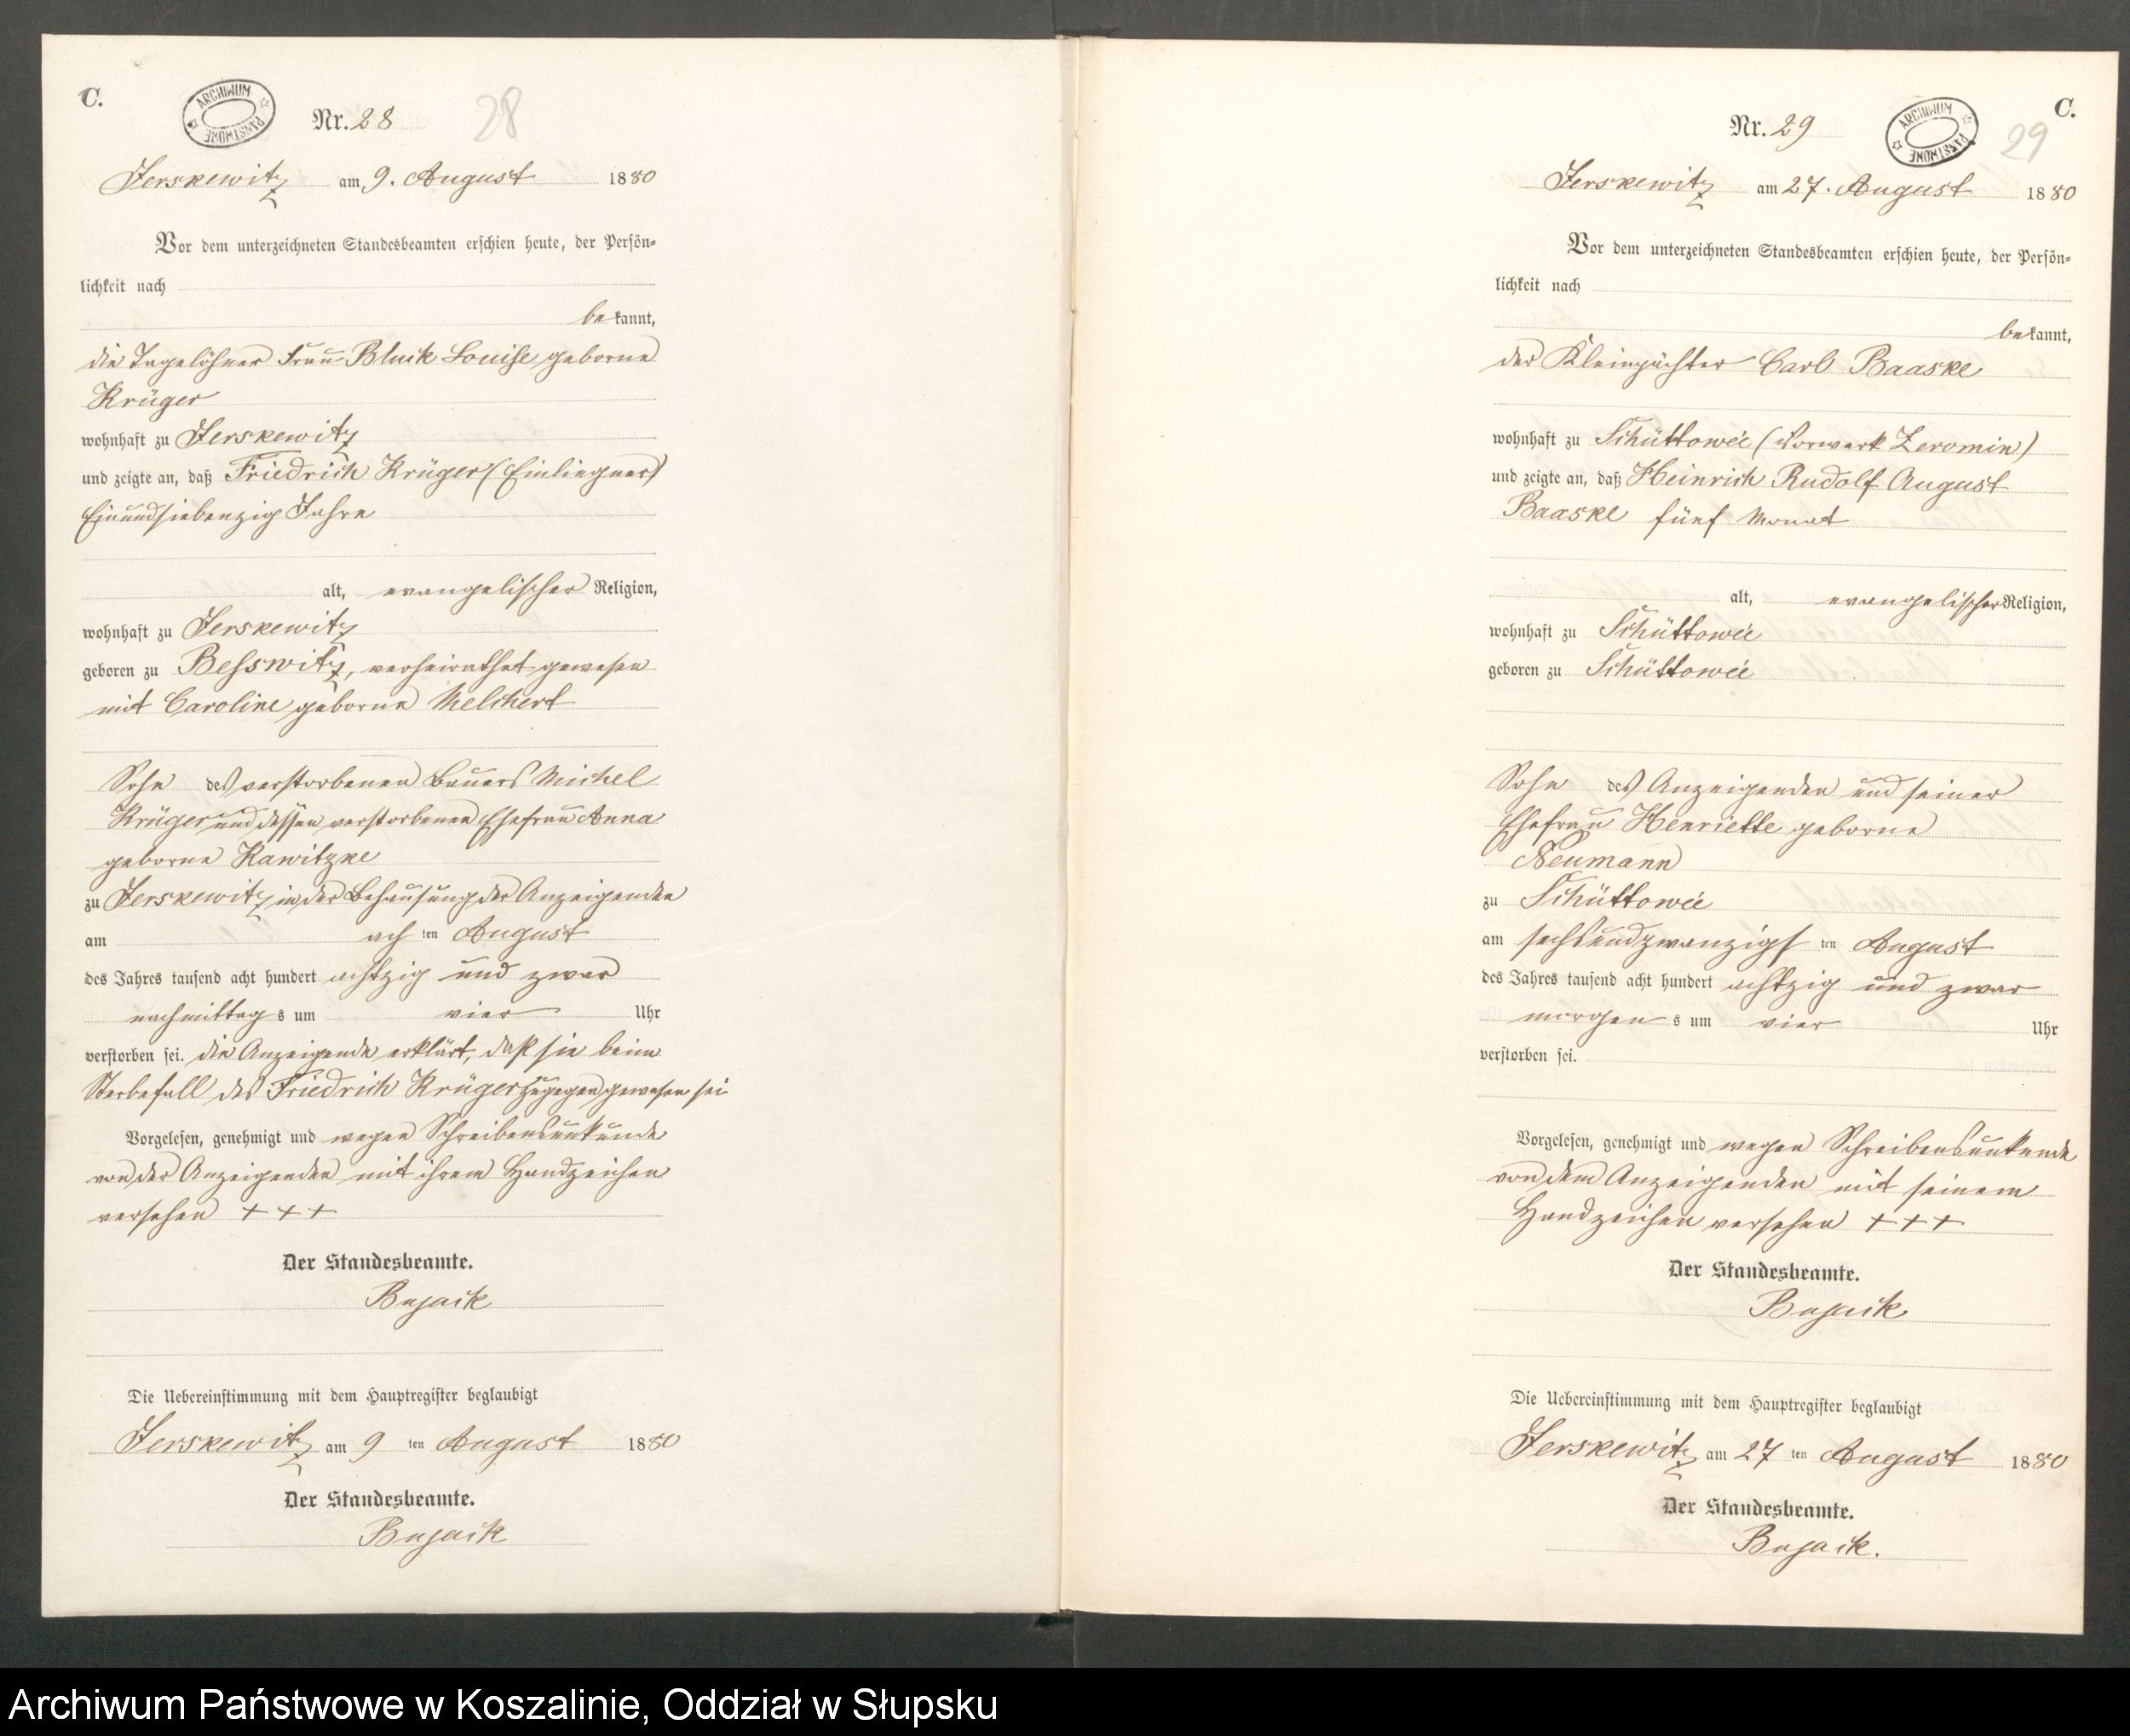 C.
ARCHIWUM PAŃSTWOWE
Nr. 28
28
Jerskewitz am 9. August 1880
Vor dem unterzeichneten Standesbeamten erschien heute, der Persön-
lichkeit nach
bekannt,
die Tagelöhner Frau Bluik Louise geborne
Krüger
wohnhaft zu Jerskewitz
und zeigte an, daß Friedrich Krüger (Einliegner)
Einundsiebenzig Jahre
alt, evangelischer Religion,
wohnhaft zu Jerskewitz
geboren zu Besswitz, verheirathet gewesen
mit Caroline geborne Melchert
Sohn des verstorbenen Bauers Michel
Krüger und dessen verstorbenen Ehefrau Anna
geborne Kawitzke
zu Jerskewitz in der Behausung der Anzeigenden
am achten August
des Jahres tausend acht hundert achtzig und zwar
nachmittags um vier Uhr
verstorben sei. die Anzeigende erklärt, daß sie beim
Sterbefall des Friedrich Krüger zugegen gewesen sei
Vorgelesen, genehmigt und wegen Schreibensunkunde
von der Anzeigenden mit ihrem Handzeichen
versehen + + +
Der Standesbeamte.
Bujack
Die Uebereinstimmung mit dem Hauptregister beglaubigt
Jerskewitz am 9 ten August 1880
Der Standesbeamte.
Bujack
C.
ARCHIWUM PAŃSTWOWE
Nr. 29
29
Jerskewitz am 27. August 1880
Vor dem unterzeichneten Standesbeamten erschien heute, der Persön-
lichkeit nach
bekannt,
der Kleinpächter Carl Baaske
wohnhaft zu Schüttowée (Vorwerk Zeromin)
und zeigte an, daß Heinrich Rudolf August
Baaske fünf Monat
alt, evangelischer Religion,
wohnhaft zu Schüttowée
geboren zu Schüttowée
Sohn des Anzeigenden und seiner
Ehefrau Henriette geborne
Neumann
zu Schüttowée
am sechsundzwanzigsten August
des Jahres tausend acht hundert achtzig und zwar
morgens um vier Uhr
verstorben sei.
Vorgelesen, genehmigt und wegen Schreibensunkunde
von dem Anzeigenden mit seinem
Handzeichen versehen + + +
Der Standesbeamte.
Bujack
Die Uebereinstimmung mit dem Hauptregister beglaubigt
Jerskewitz am 27 ten August 1880
Der Standesbeamte.
Bujack.
Archiwum Państwowe w Koszalinie, Oddział w Słupsku